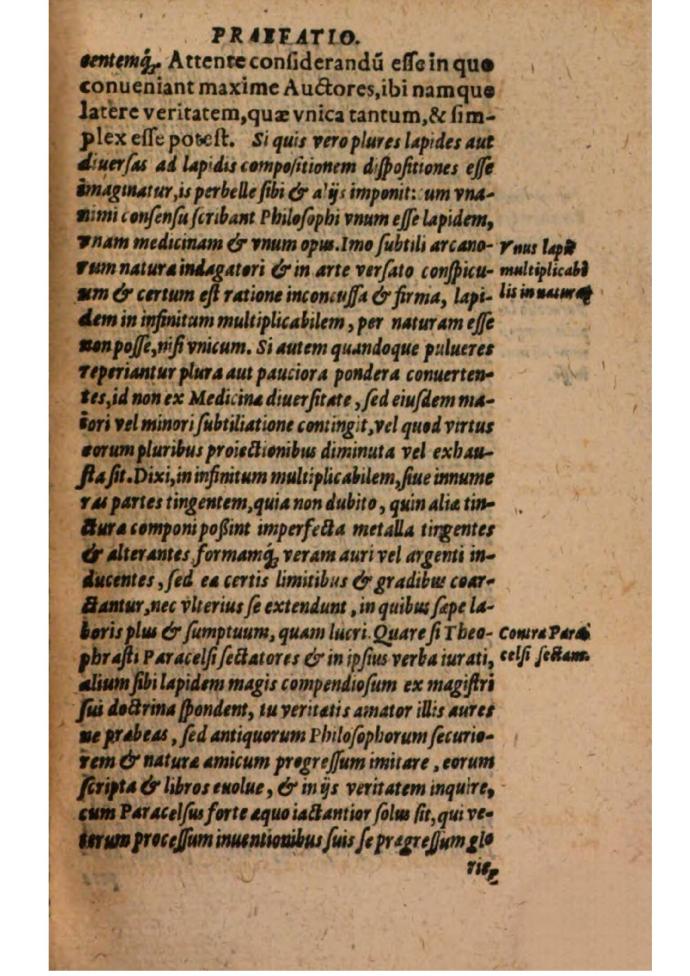 PRAEFATIO.
centemq́;. Attente considerandū esse in quo
conueniant maxime Auctores, ibi namque
latere veritatem, quæ vnica tantum, & sim-
plex esse potest. Si quis vero plures lapides aut
diuersas ad lapidis compositionem dispositiones esse
imaginatur, is perbelle sibi & alijs imponit: cum vna-
nimi consensu scribant Philosophi vnum esse lapidem,
vnam medicinam & vnum opus. Imo subtili arcano-
rum natura indagatori & in arte versato conspicu-
um & certum est ratione inconcussa & firma, lapi-
dem in infinitum multiplicabilem, per naturam esse
non posse, nisi vnicum. Si autem quandoque pulueres
reperiantur plura aut pauciora pondera conuerten-
tes, id non ex Medicina diuersitate, sed eiusdem ma-
iori vel minori subtiliatione contingit, vel quod virtus
eorum pluribus proiectionibus diminuta vel exhau-
sta sit. Dixi, in infinitum multiplicabilem, siue innume
ras partes tingentem, quia non dubito, quin alia tin-
ctura componi possint imperfecta metalla tingentes
& alterantes, formamq́; veram auri vel argenti in-
ducentes, sed ea certis limitibus & gradibus coar-
ctantur, nec vlterius se extendunt, in quibus sæpe la-
boris plus & sumptuum, quam lucri. Quare si Theo-
phrasti Paracelsi sectatores & in ipsius verba iurati,
alium sibi lapidem magis compendiosum ex magistri
sui doctrina spondent, tu veritatis amator illis aures
ne præbeas, sed antiquorum Philosophorum securio-
rem & natura amicum progressum imitare, eorum
scripta & libros euolue, & in ijs veritatem inquire,
cum Paracelsus forte æquo iactantior solus sit, qui ve-
terum processum inuentionibus suis se prægressum glo
rie-
Vnus lapis
multiplicabi
lis in natura
Contra Para
celsi sectam.